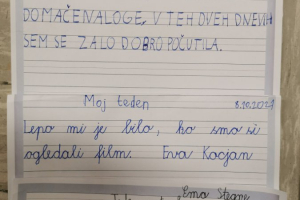 DOMAČE NALOGE. V TEH DVEH DNEVIH
SEM SE ZALO DOBRO POČUTILA.
Moj teden 8.10.2021
Lepo mi je bilo, ko smo si
ogledali film. Eva Kocjan
Ema Stegne